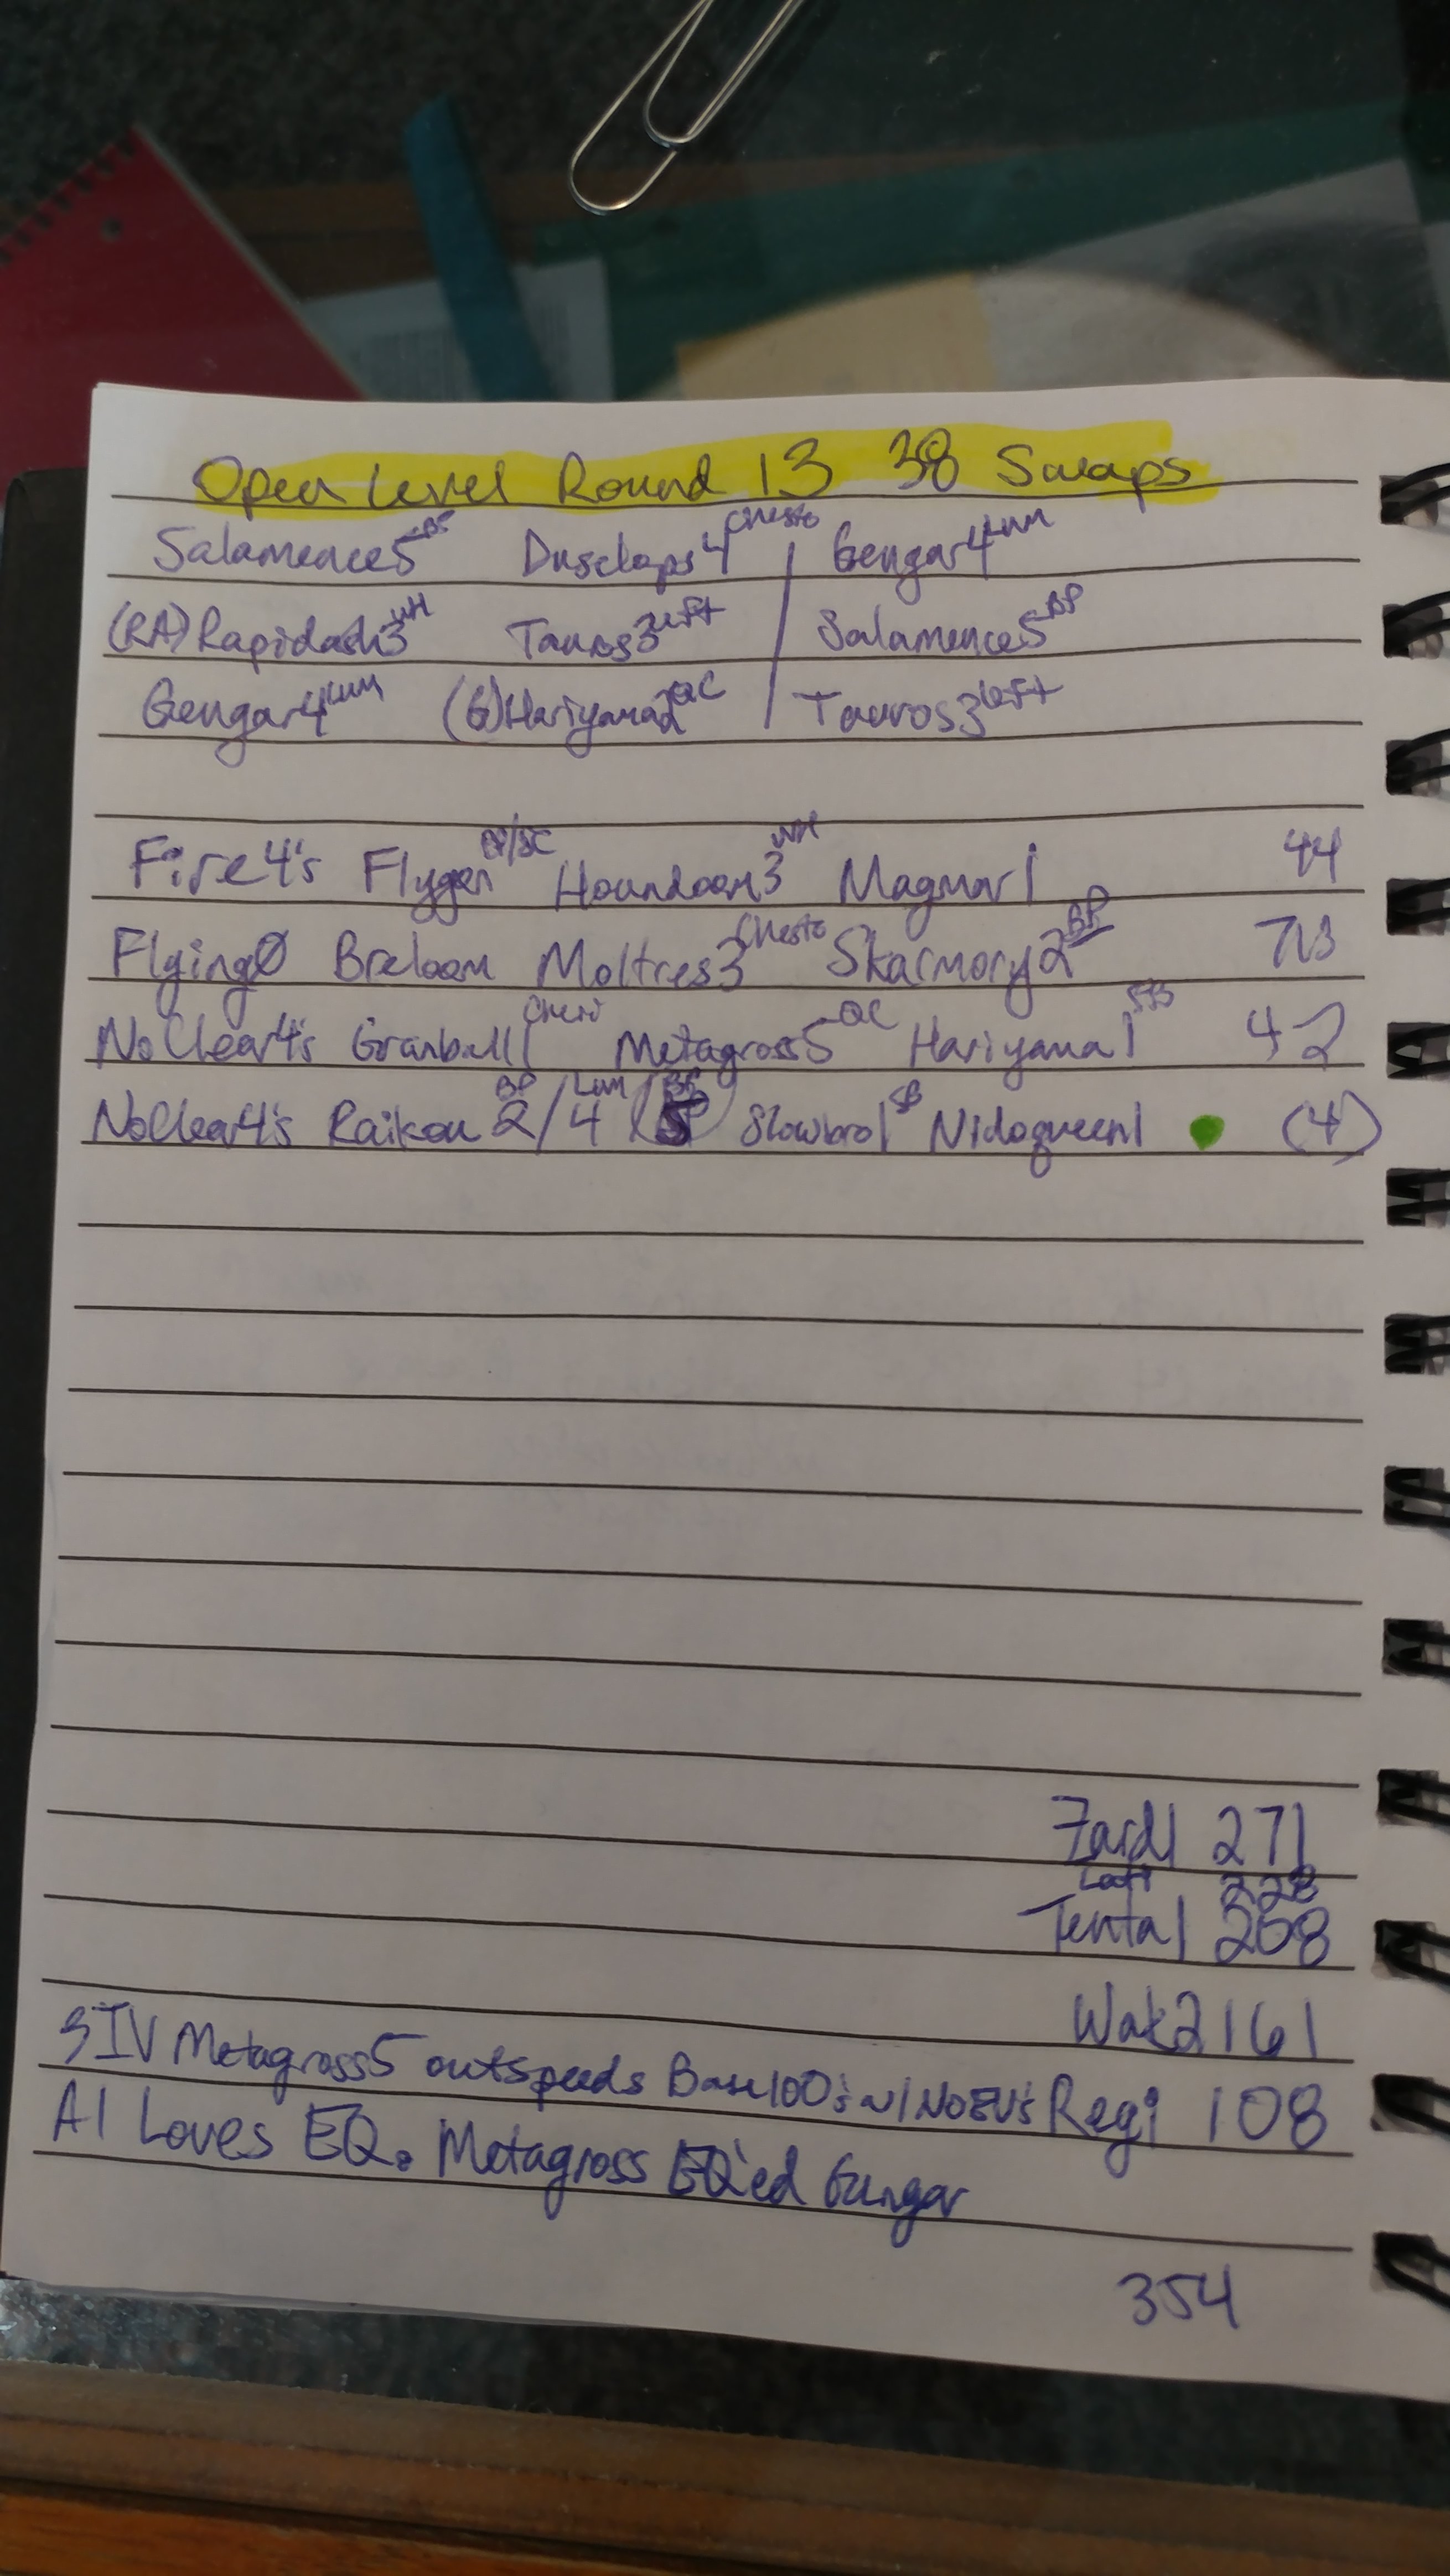 Open Level Round 13 38 Swaps
Salamence5 BP Dusclops4 Chesto Gengar4 Lum
(RA) Rapidash3 WH Tauros3 Left Salamence5 BP
Gengar4 Lum (G) Hariyama2 QC Tauros3 Left
Fire4's Flygon /SC Houndoom3 WH Magmar1 44
FlyingØ Breloom Moltres3 Chesto Skarmory2 BP
NoClear4's Granbull1 Cheri Metagross5 QC Hariyama1 42
NoClear4's Raikou 2 BP/4 Lum/ Slowbro1 Nidoqueen1 (4)
Zard1 271
Lati 228
Tenta1 268
Wak2 161
3IV Metagross5 outspeeds Base100's w/NoEV's Regi 108
AI Loves EQ. Metagross EQ'ed Gengar
354